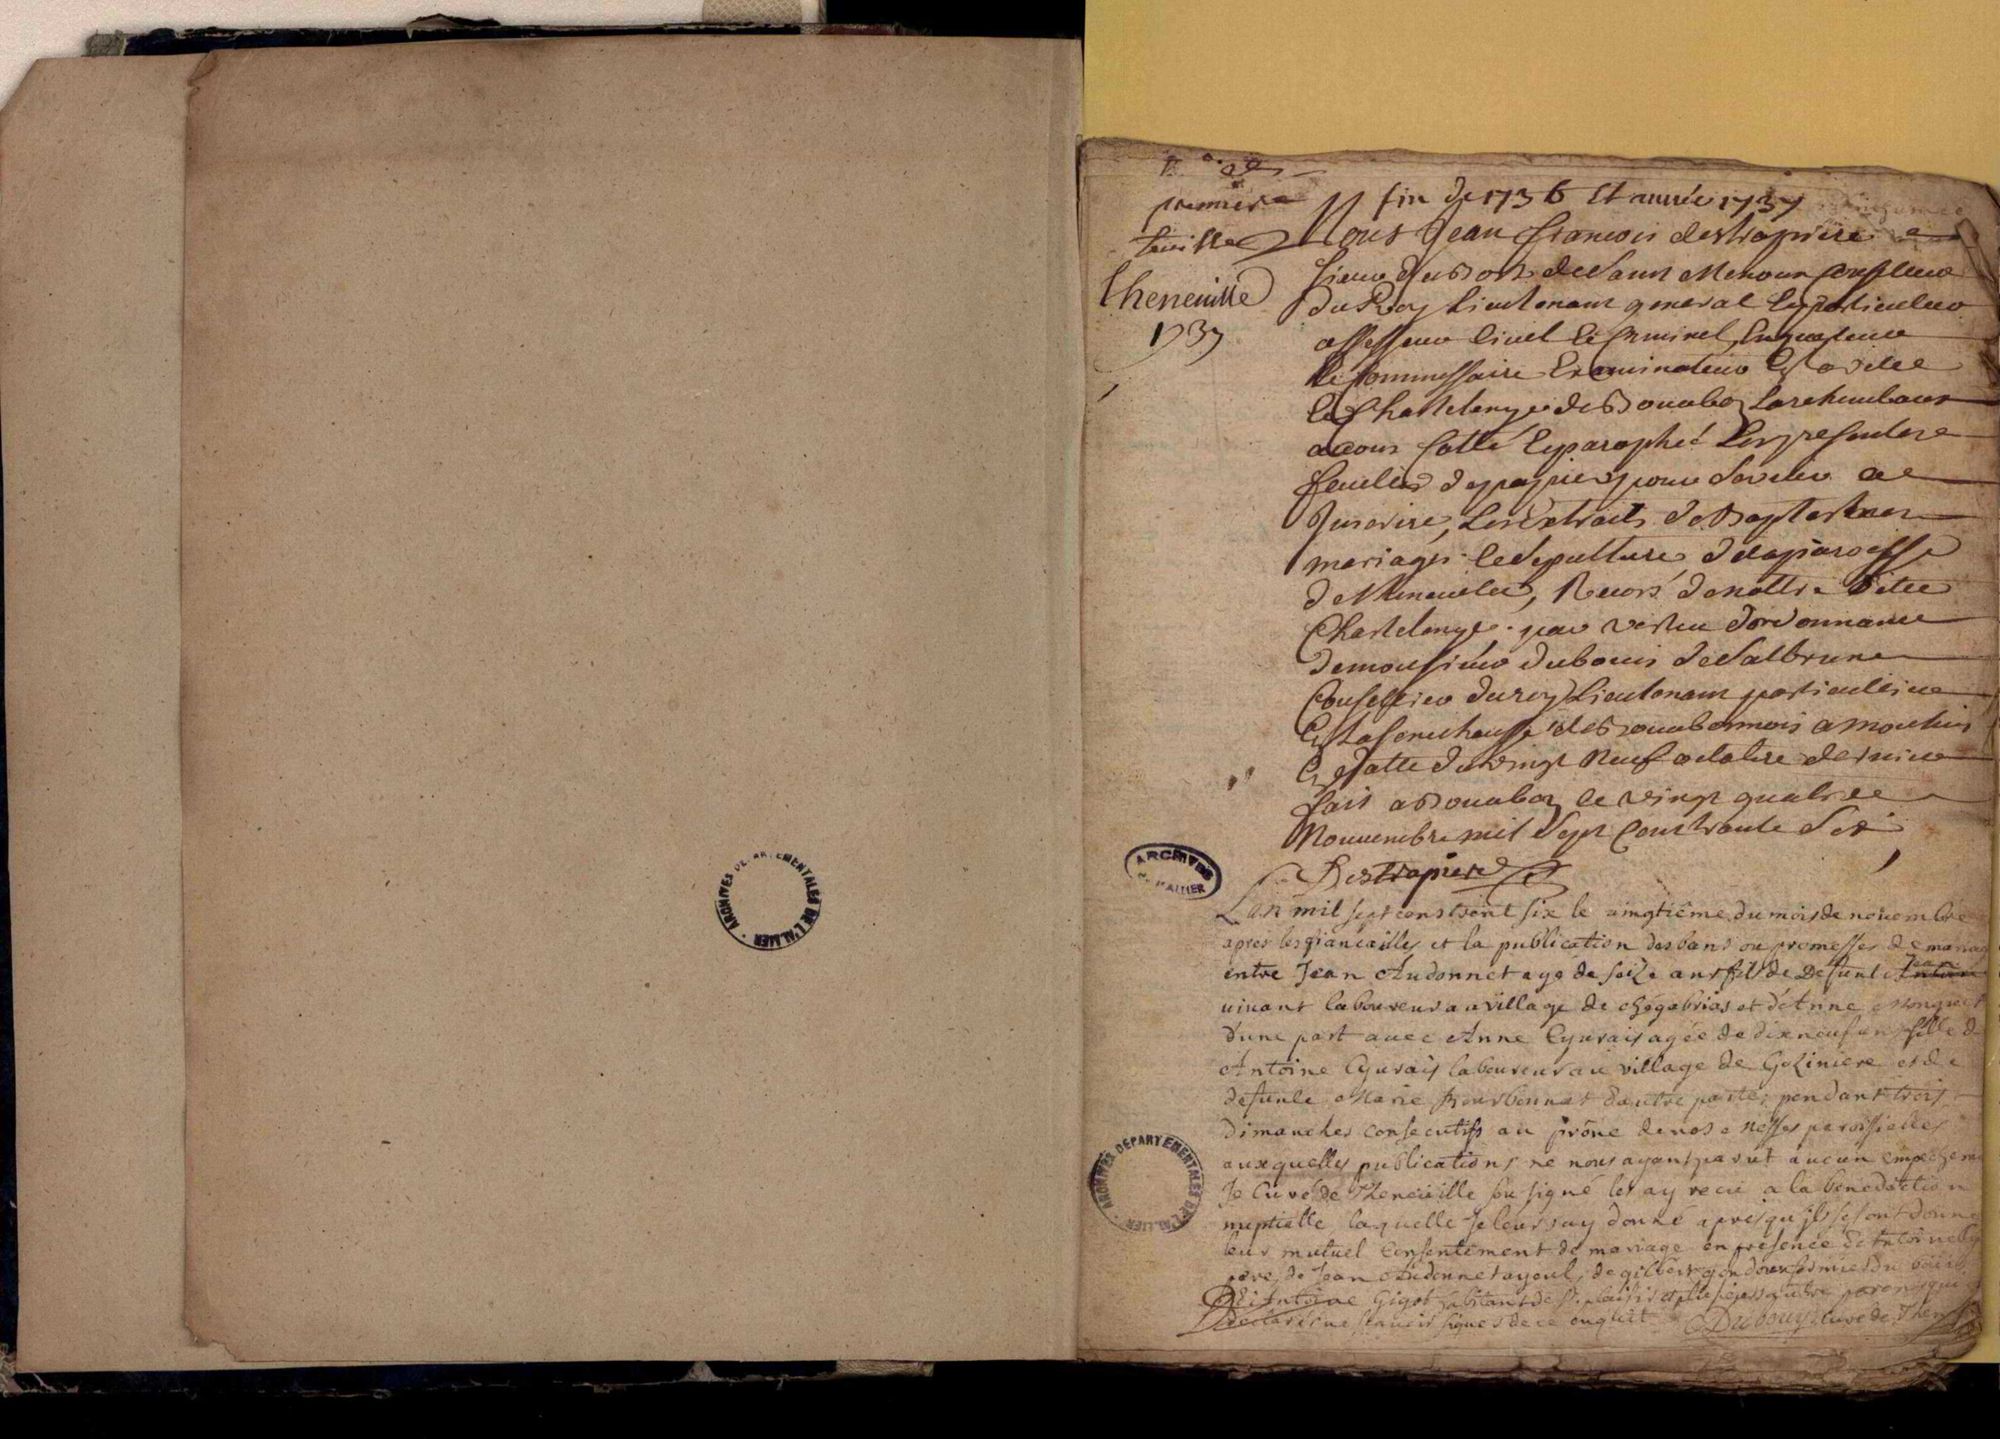 premiere
feuille
Theneuille
1737
fin de 1736 Et année 1737
Nous Jean francois destrapiere
sieur du Bost de Saint Menoux Conseilleur
du Roy Lieutenant general Et particulier
assesseur Civil Et Criminel, Enquesteur
Et Commessaire Examinateur En la ville
Et Chastelenye de Bourbon Larchembaut
avons Cotté Et paraphé Les presentes
feuilles de papier pour Servir a
Inscrire, Les Extraits de Baptesmes
mariages et Sepulture, de la paroesse
de Theneuille, Ressort de nottre ditte
Chastelenye par vertu d'ordonnance
de monsieur dubouis de Salbrune
Conseiller du roy Lieutenant particulier
En La Senechaussé de Bourbonnois a Moulins
En datte du vingt Neuf octobre dernier
fait a Bourbon le vingt quatre
Novembre mil Sept Cens trante Six
Destrapiere
ARCHIVES
DE L'ALLIER
ARCHIVES DEPARTEMENTALES DE L'ALLIER
Lan mil sept cens trent six le vingtiême du mois de novembre
apres les fiancailles et la publication des bans ou promesses de mariag
entre Jean Audonnet agé de seize ans fils de Defunt Jean Antoine
vivant laboureur au village de chégabrias et d'Anne Monquet
d'une part avec Anne Cyurais agée de dix neuf ans fille de
Antoine Cyurais laboureur au village de Goziniere et de
defunte Marie Bourbonnat d'autre parte; pendant trois
dimanches consecutifs au prône de nos Messes paroissielles
auxquelles publications ne nous ayant parut aucun empechem
Je Curé de Theneüille sousigné les ay recu a la benediction
nuptielle laquelle Je leurs ay donné apres qu'ils se sont donné
leur mutuel Consentement de mariage en presence de
pere, de Jean Audonnet ayeul, de gilbert
Antoine Gigot habitant de St plaisir et plusieurs autre parens qui
declaré ne scavoir signes de ce enquit Dubouys curé de Then
ARCHIVES DEPARTEMENTALES DE L'ALLIER